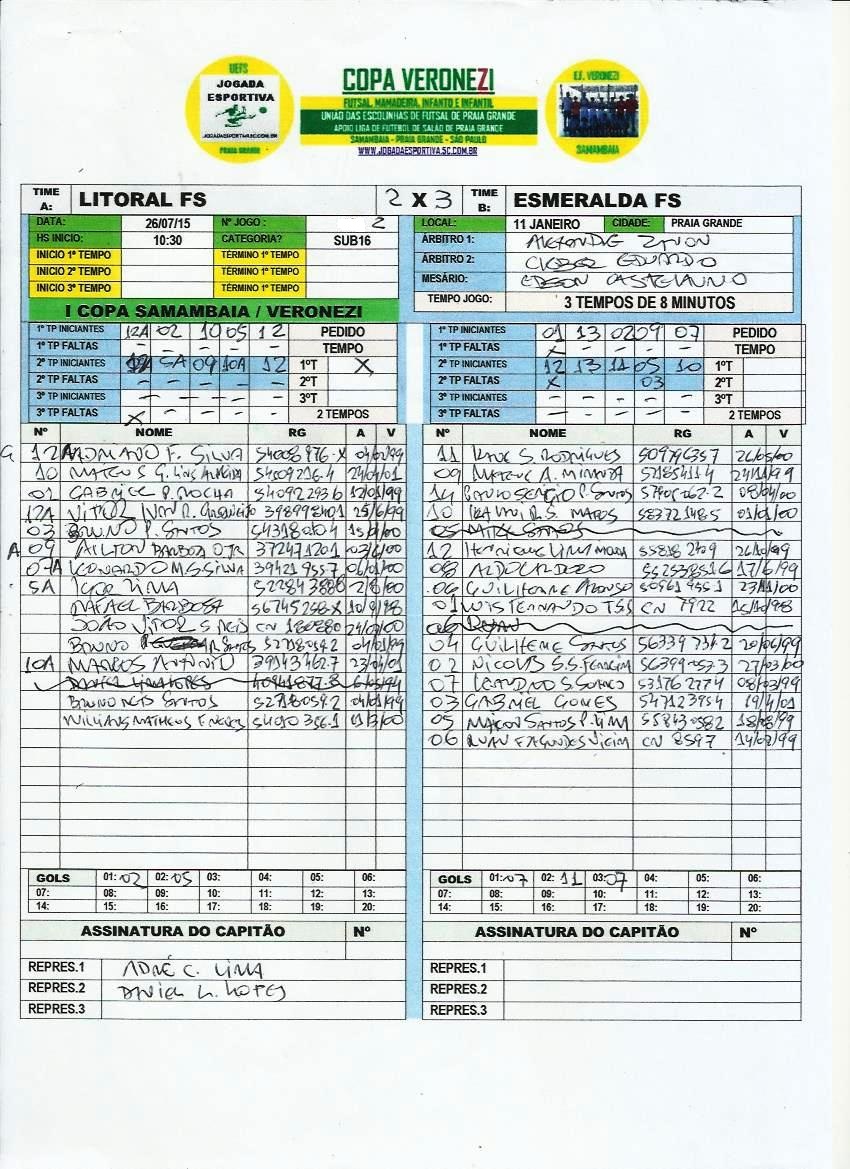 UEFS
JOGADA
ESPORTIVA
JOGADAESPORTIVA.SC.COM.BR
PRAIA GRANDE
COPA VERONEZI
FUTSAL, MAMADEIRA, INFANTO E INFANTIL
UNIÃO DAS ESCOLINHAS DE FUTSAL DE PRAIA GRANDE
APOIO LIGA DE FUTEBOL DE SALÃO DE PRAIA GRANDE
SAMAMBAIA - PRAIA GRANDE - SÃO PAULO
WWW.JOGADAESPORTIVA.SC.COM.BR
E.F. VERONEZI
SAMAMBAIA
TIME A: LITORAL FS 2 X 3 TIME B: ESMERALDA FS
DATA: 26/07/15 Nº JOGO: 2 LOCAL: 11 JANEIRO CIDADE: PRAIA GRANDE
HS INICIO: 10:30 CATEGORIA? SUB16 ÁRBITRO 1:
INICIO 1º TEMPO TÉRMINO 1º TEMPO ÁRBITRO 2: CLEBER EDUARDO
INICIO 2º TEMPO TÉRMINO 1º TEMPO MESÁRIO: EDSON
INICIO 3º TEMPO TÉRMINO 1º TEMPO TEMPO JOGO: 3 TEMPOS DE 8 MINUTOS
I COPA SAMAMBAIA / VERONEZI
1º TP INICIANTES 12A 02 10 05 12 PEDIDO
1º TP FALTAS - - - - - TEMPO
2º TP INICIANTES 5A 09 10A 12 1ºT X
2º TP FALTAS - - - - - 2ºT
3º TP INICIANTES - - - - - 3ºT
3º TP FALTAS X - - - - 2 TEMPOS
1º TP INICIANTES 01 13 02 09 07 PEDIDO
1º TP FALTAS X - - - - TEMPO
2º TP INICIANTES 12 13 11 05 10 1ºT
2º TP FALTAS X 03 2ºT
3º TP INICIANTES - - - - - 3ºT
3º TP FALTAS - - - - - 2 TEMPOS
Nº NOME RG A V
G 12 F. SILVA 54008976-X
10 MATEUS G. LINS ALMEIDA 54009216-4 24/04/01
01 GABRIEL P. ROCHA 540922936 12/01/99
12A VITOR 398998401 25/6/99
03 BRUNO P. SANTOS
A 09 AILTON BARBOZA 372471201 03/6/00
07A LEONARDO M S SILVA 39421955-7 06/01/00
5A IGOR LIMA 522843888 2/8/00
RAFAEL BARBOSA 56745268-X 10/9/98
JOÃO VITOR S REIS CN 180880 24/01/00
BRUNO SANTOS
10A MARCOS ANTONIO 39143462-7 23/04/01
BRUNO REIS SANTOS 52718059-2 04/01/99
54010356-1 01/3/00
Nº NOME RG A V
11 S. RODRIGUES 509796357 26/05/00
09 A. MIRANDA 521854114 24/11/99
14 BRUNO SERGIO P. SANTOS 08/04/00
10 R. S. MATOS 583721485 01/01/00
05
12 HENRIQUE LIMA 26/10/99
08 552538516 17/6/99
06 GUILHERME AFONSO 50961955-1 23/11/00
01 LUIS FERNANDO CN 7922 15/10/98
06 RUAN
04 GUILHEME SANTOS 56339734-2 20/06/99
02 NICOLAS S.S. FERREIRA 27/03/00
07 LEANDRO S. 531762774 08/03/99
03 GABRIEL GOMES 547123954 19/4/01
05 MAICON SANTOS P. LIMA 558430582 18/08/99
06 RUAN FAGUNDES CN 8597 14/02/99
GOLS 01: 02 02: 05 03: 04: 05: 06:
07: 08: 09: 10: 11: 12: 13:
14: 15: 16: 17: 18: 19: 20:
GOLS 01: 07 02: 11 03: 07 04: 05: 06:
07: 08: 09: 10: 11: 12: 13:
14: 15: 16: 17: 18: 19: 20:
ASSINATURA DO CAPITÃO Nº
REPRES.1 ADRÉ C. LIMA
REPRES.2 DANIEL L. LOPES
REPRES.3
ASSINATURA DO CAPITÃO Nº
REPRES.1
REPRES.2
REPRES.3